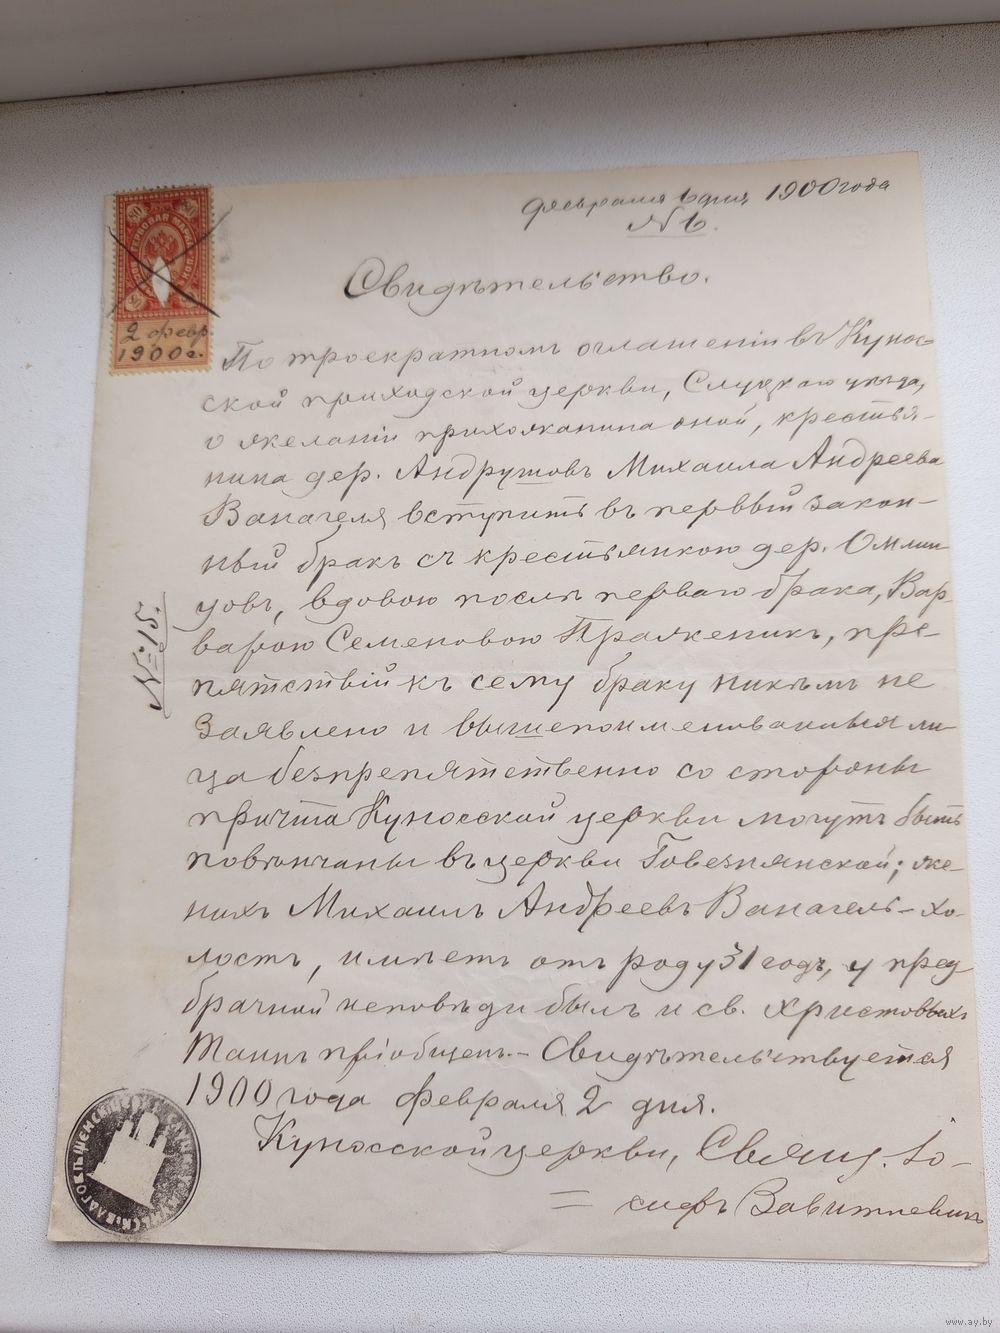 февраля 6 дня 1900 года
№ 6.
80 80
ГЕРБОВАЯ МАРКА
КОП.
2 февр
1900 г.
Свидѣтельство.
По троекратномъ оглашеніи въ Кунос-
ской приходской церкви, Слуцкаго уѣзда,
о желаніи прихожанина оной, крестья-
нина дер. Андрушовъ Михаила Андреева
Ванагеля вступить въ первый закон-
ный бракъ съ крестьянкою дер. Омлин
цовъ, вдовою послѣ перваго брака, Вар-
варою Семеновою Пражкеникъ, пре-
пятствій къ сему браку никѣмъ не
заявлено и вышепоименованныя ли
ца безпрепятственно со стороны
причта Куносской церкви могутъ быть
повѣнчаны въ церкви Говезнянской; же-
нихъ Михаилъ Андреевъ Ванагель – хо-
лостъ, имѣетъ отъ роду 31 годъ, у пред
брачной исповѣди былъ и св. Христовыхъ
Таинъ пріобщенъ. – Свидѣтельствуется
1900 года февраля 2 дня.
Куносской церкви, Священ. Іо-
сифъ Завитневичъ
№ 15.
www.ay.by